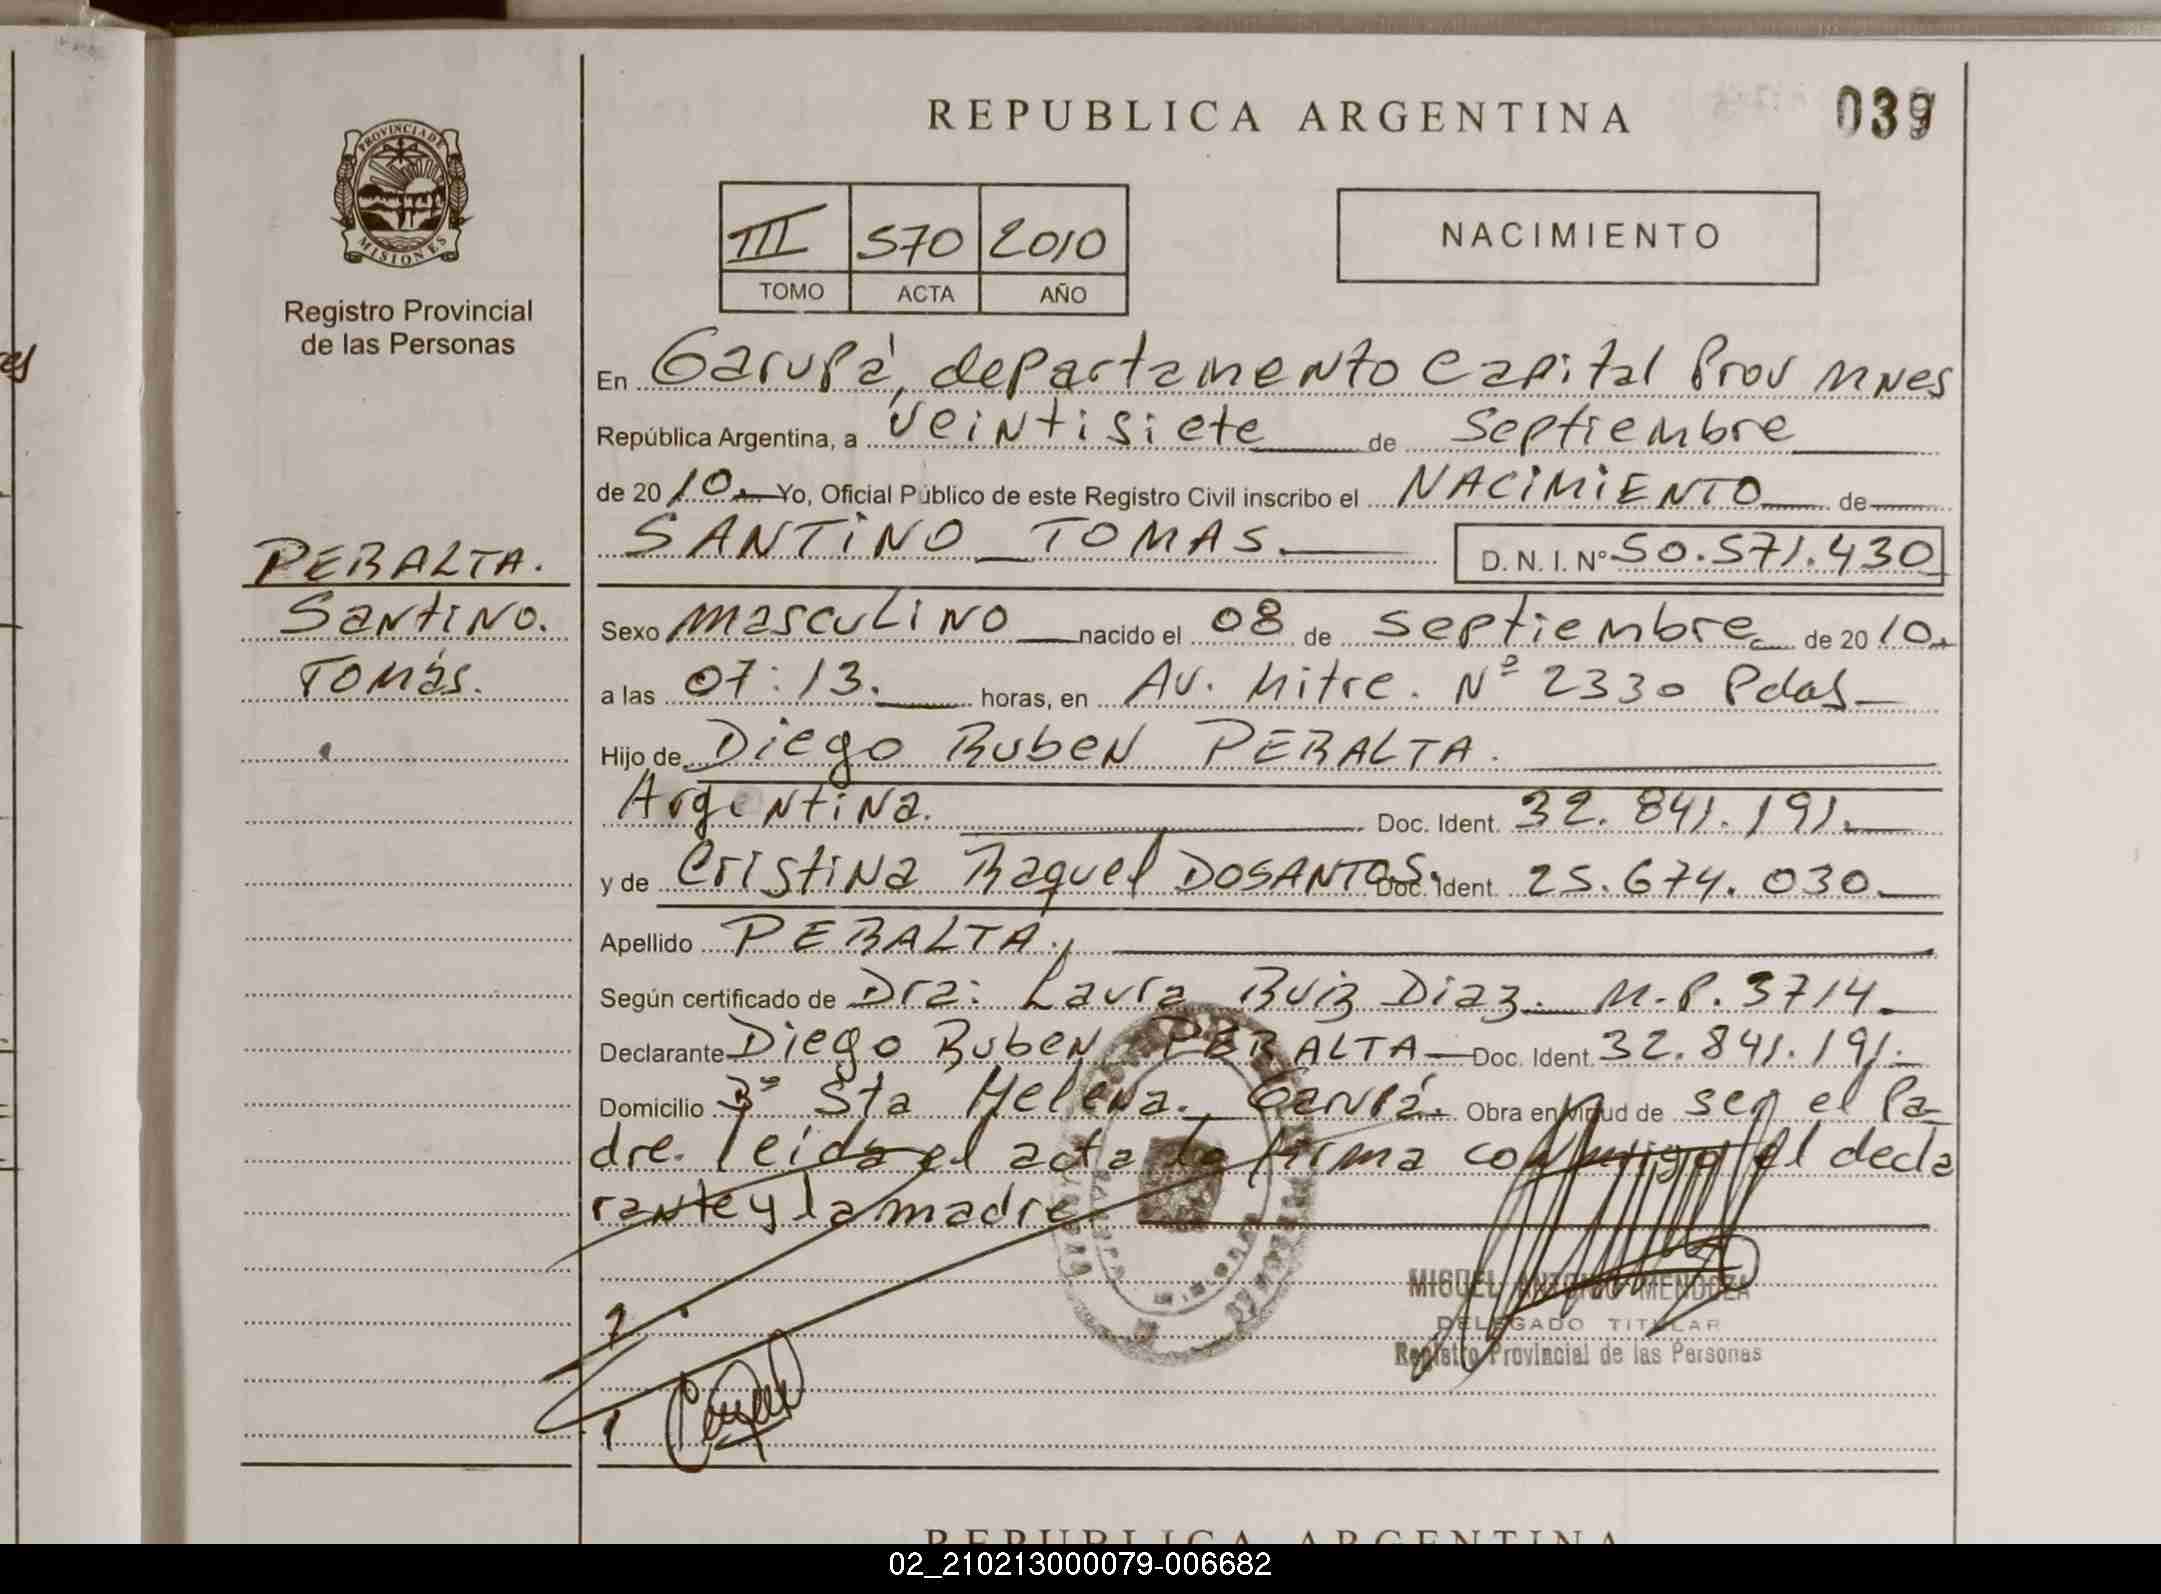 REPUBLICA ARGENTINA
039
PROVINCIA DE
MISIONES
Registro Provincial
de las Personas
III 570 2010
TOMO ACTA AÑO
NACIMIENTO
En Garupá, departamento Capital Prov Mnes
República Argentina, a veintisiete de Septiembre
de 2010. Yo, Oficial Público de este Registro Civil inscribo el NACIMIENTO de
SANTINO TOMAS.
D. N. I. Nº 50.571.430
PERALTA.
Santino.
Tomás.
Sexo masculino nacido el 08 de septiembre de 2010.
a las 07:13. horas, en Av. Mitre. Nº 2330 Pdas
Hijo de Diego Ruben PERALTA.
Argentina. Doc. Ident. 32.841.191.
y de Cristina Raquel DOSANTOS. Doc. Ident. 25.674.030.
Apellido PERALTA.
Según certificado de Dra: Laura Ruiz Diaz. M.P. 3714.
Declarante Diego Ruben PERALTA Doc. Ident. 32.841.191.
Domicilio Bº Sta Helena. Garupá. Obra en virtud de ser el Pa-
dre. leida el acta la firma conmigo el decla
rante y la madre
MIGUEL ANTONIO MENDOZA
DELEGADO TITULAR
Registro Provincial de las Personas
REPUBLICA ARGENTINA
02_210213000079-006682